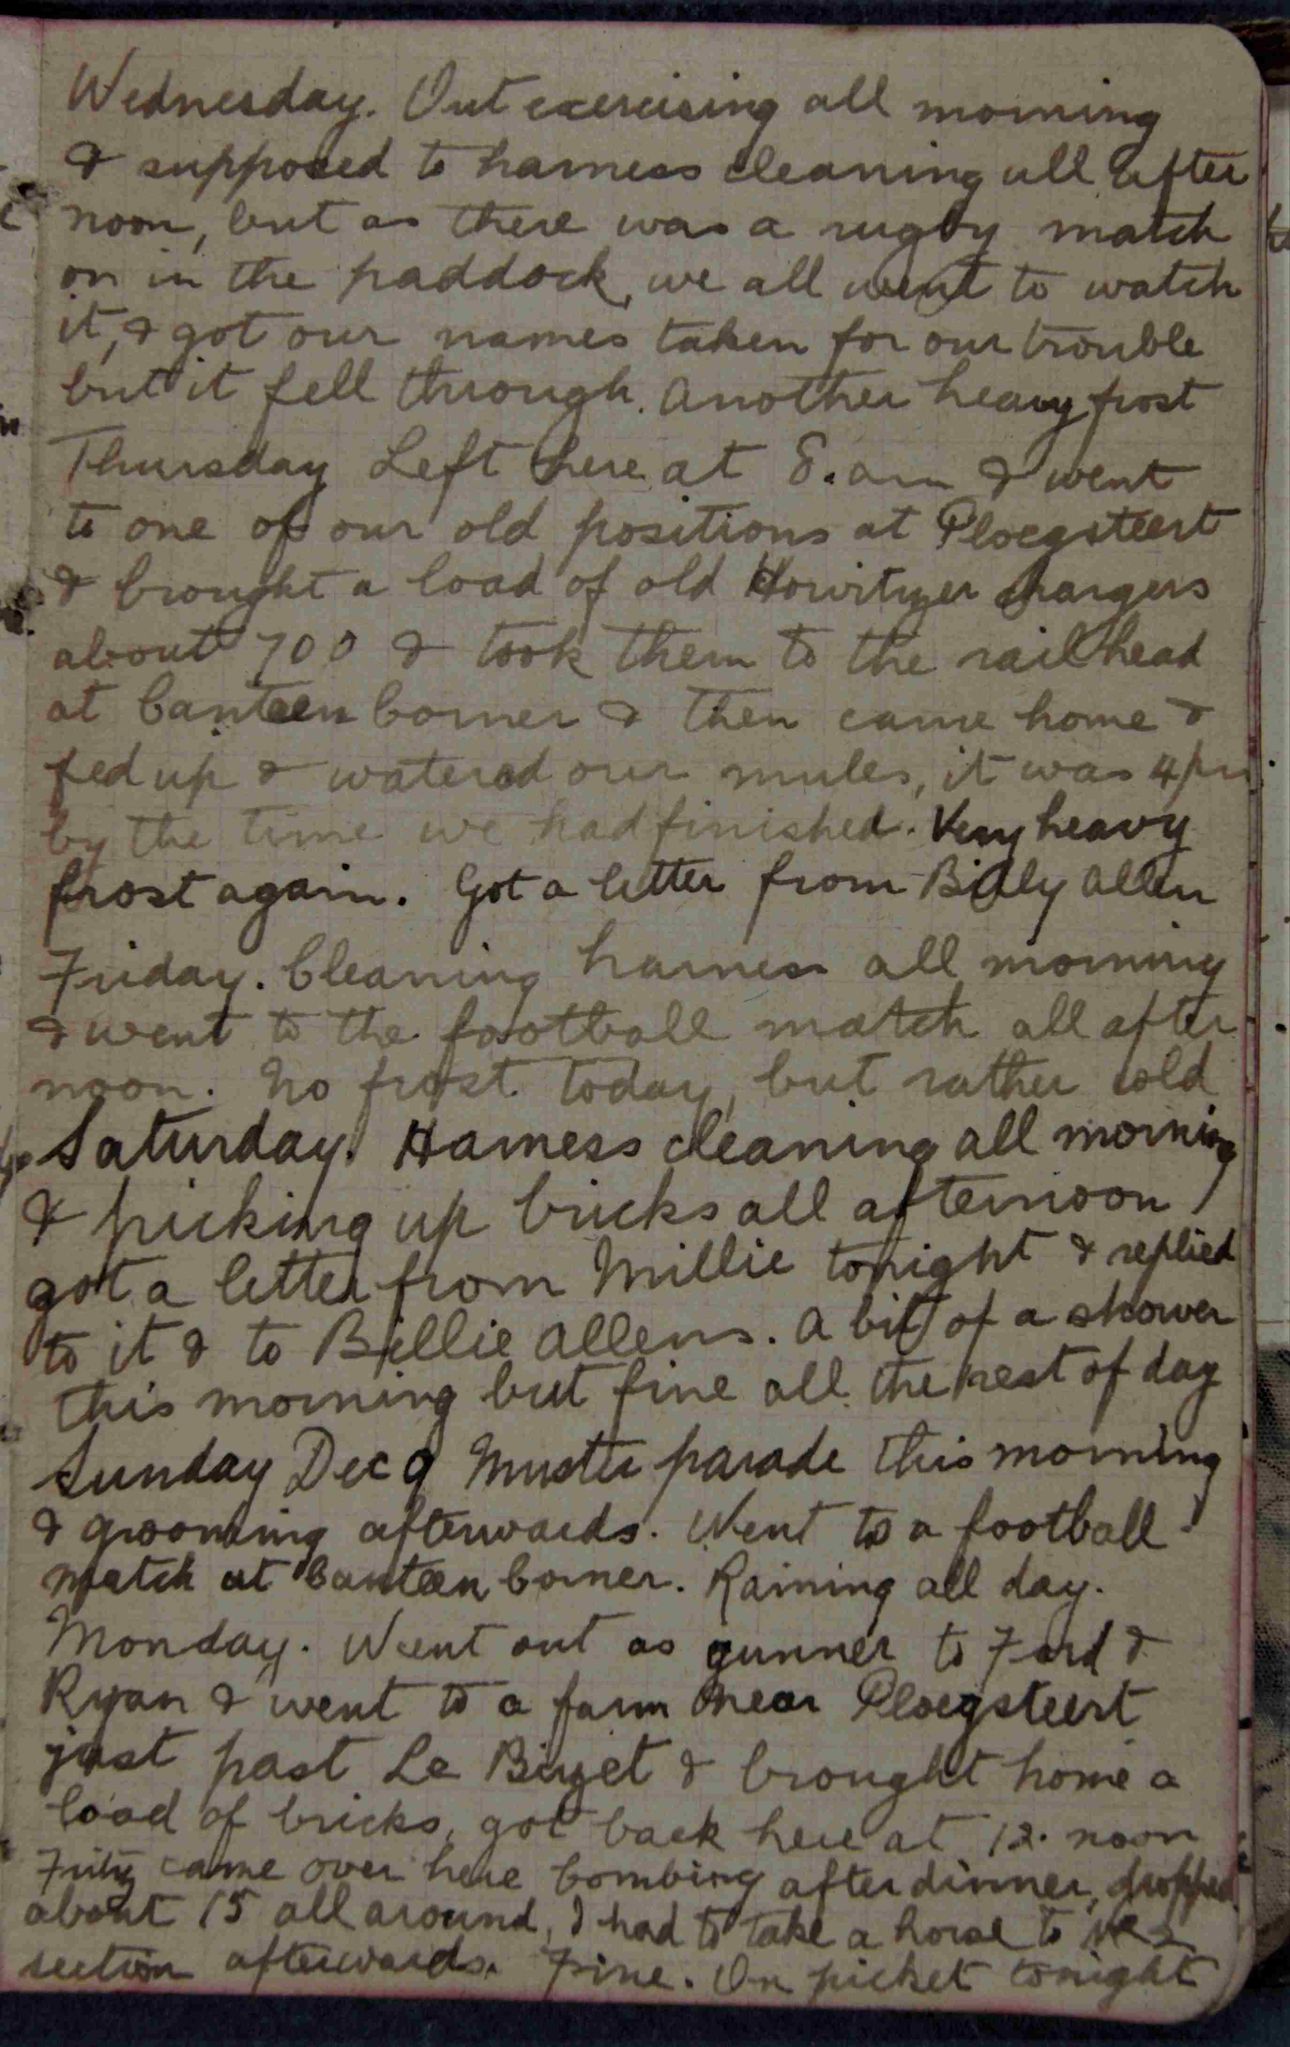 Wednesday. Out exercising all morning
& supposed to harness cleaning all after
noon, but as there was a rugby match
on in the paddock, we all went to watch
it, & got our names taken for our trouble
but it fell through. Another heavy frost
Thursday Left here at 8.am & went
to one of our old positions at Ploegsteert
& brought a load of old Howitzer chargers
about 700 & took them to the railhead
at Canteen Corner & then came home &
fed up & watered our mules, it was 4pm.
by the time we had finished. Very heavy
frost again. Got a letter from Billy Allen
Friday. Cleaning harness all morning
& went to the football match all after
noon. No frost today, but rather cold
Saturday. Harness cleaning all morning
& picking up bricks all afternoon
got a letter from Millie tonight & replied
to it & to Billie Allens. A bit of a shower
this morning but fine all the rest of day
Sunday Dec 9 Muster parade this morning
& grooming afterwards. Went to a football
match at Canteen Corner. Raining all day.
Monday. Went out as gunner to Ford &
Ryan & went to a farm near Ploegsteert
just past Le Bizet & brought home a
load of bricks, got back here at 12. noon
Fritz came over here bombing after dinner, dropped
about 15 all around, I had to take a horse to
section afterwards. Fine. On picket tonight